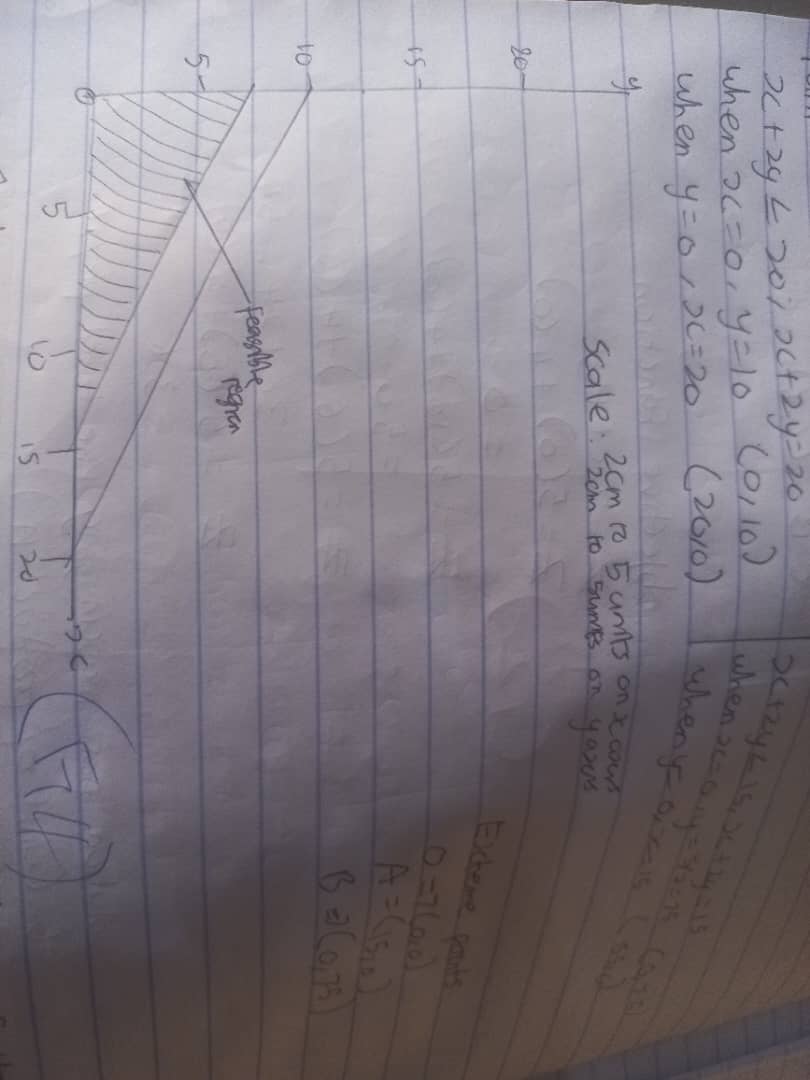 x+2y ≤ 20; x+2y=20
when x=0, y=10 (0,10)
when y=0, x=20 (20,0)
x+2y ≤ 15, x+2y=15
when x=0, y=7.5
when y=0, x=15
Scale: 2cm to 5 units on x axis
2cm to 5 units on y axis
y
20
15
10
5
0
5
10
15
20
x
feasible
region
Extreme points
A = (15,0)